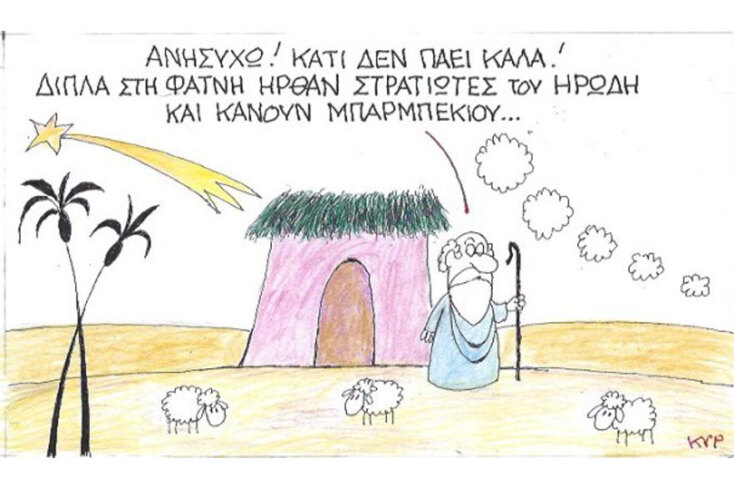 ΑΝΗΣΥΧΩ! ΚΑΤΙ ΔΕΝ ΠΑΕΙ ΚΑΛΑ!
ΔΙΠΛΑ ΣΤΗ ΦΑΤΝΗ ΗΡΘΑΝ ΣΤΡΑΤΙΩΤΕΣ του ΗΡΩΔΗ
ΚΑΙ ΚΑΝΟΥΝ ΜΠΑΡΜΠΕΚΙΟΥ...
ΚΥΡ